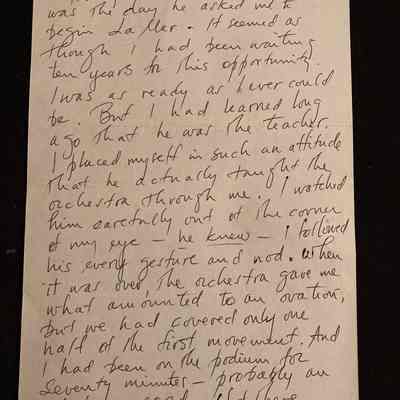 was the day he asked me to
begin La Mer. It seemed as
though I had been waiting
ten years for this opportunity.
I was as ready as I ever could
be. But I had learned long
ago that he was the teacher.
I placed myself in such an attitude
that he actually taught the
orchestra through me. I watched
him carefully out of the corner
of my eye — he knew — I followed
his every gesture and nod. When
it was over, the orchestra gave me
what amounted to an ovation,
but we had covered only one
half of the first movement. And
I had been on the podium for
seventy minutes — probably an